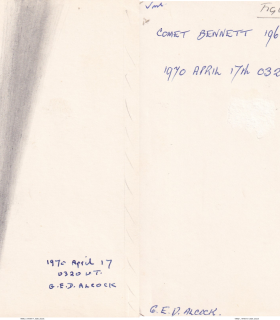 FIG
COMET BENNETT 196
1970 APRIL 17th 032
1970 April 17
0320 U.T.
G.E.D. ALCOCK
G.E.D. ALCOCK.